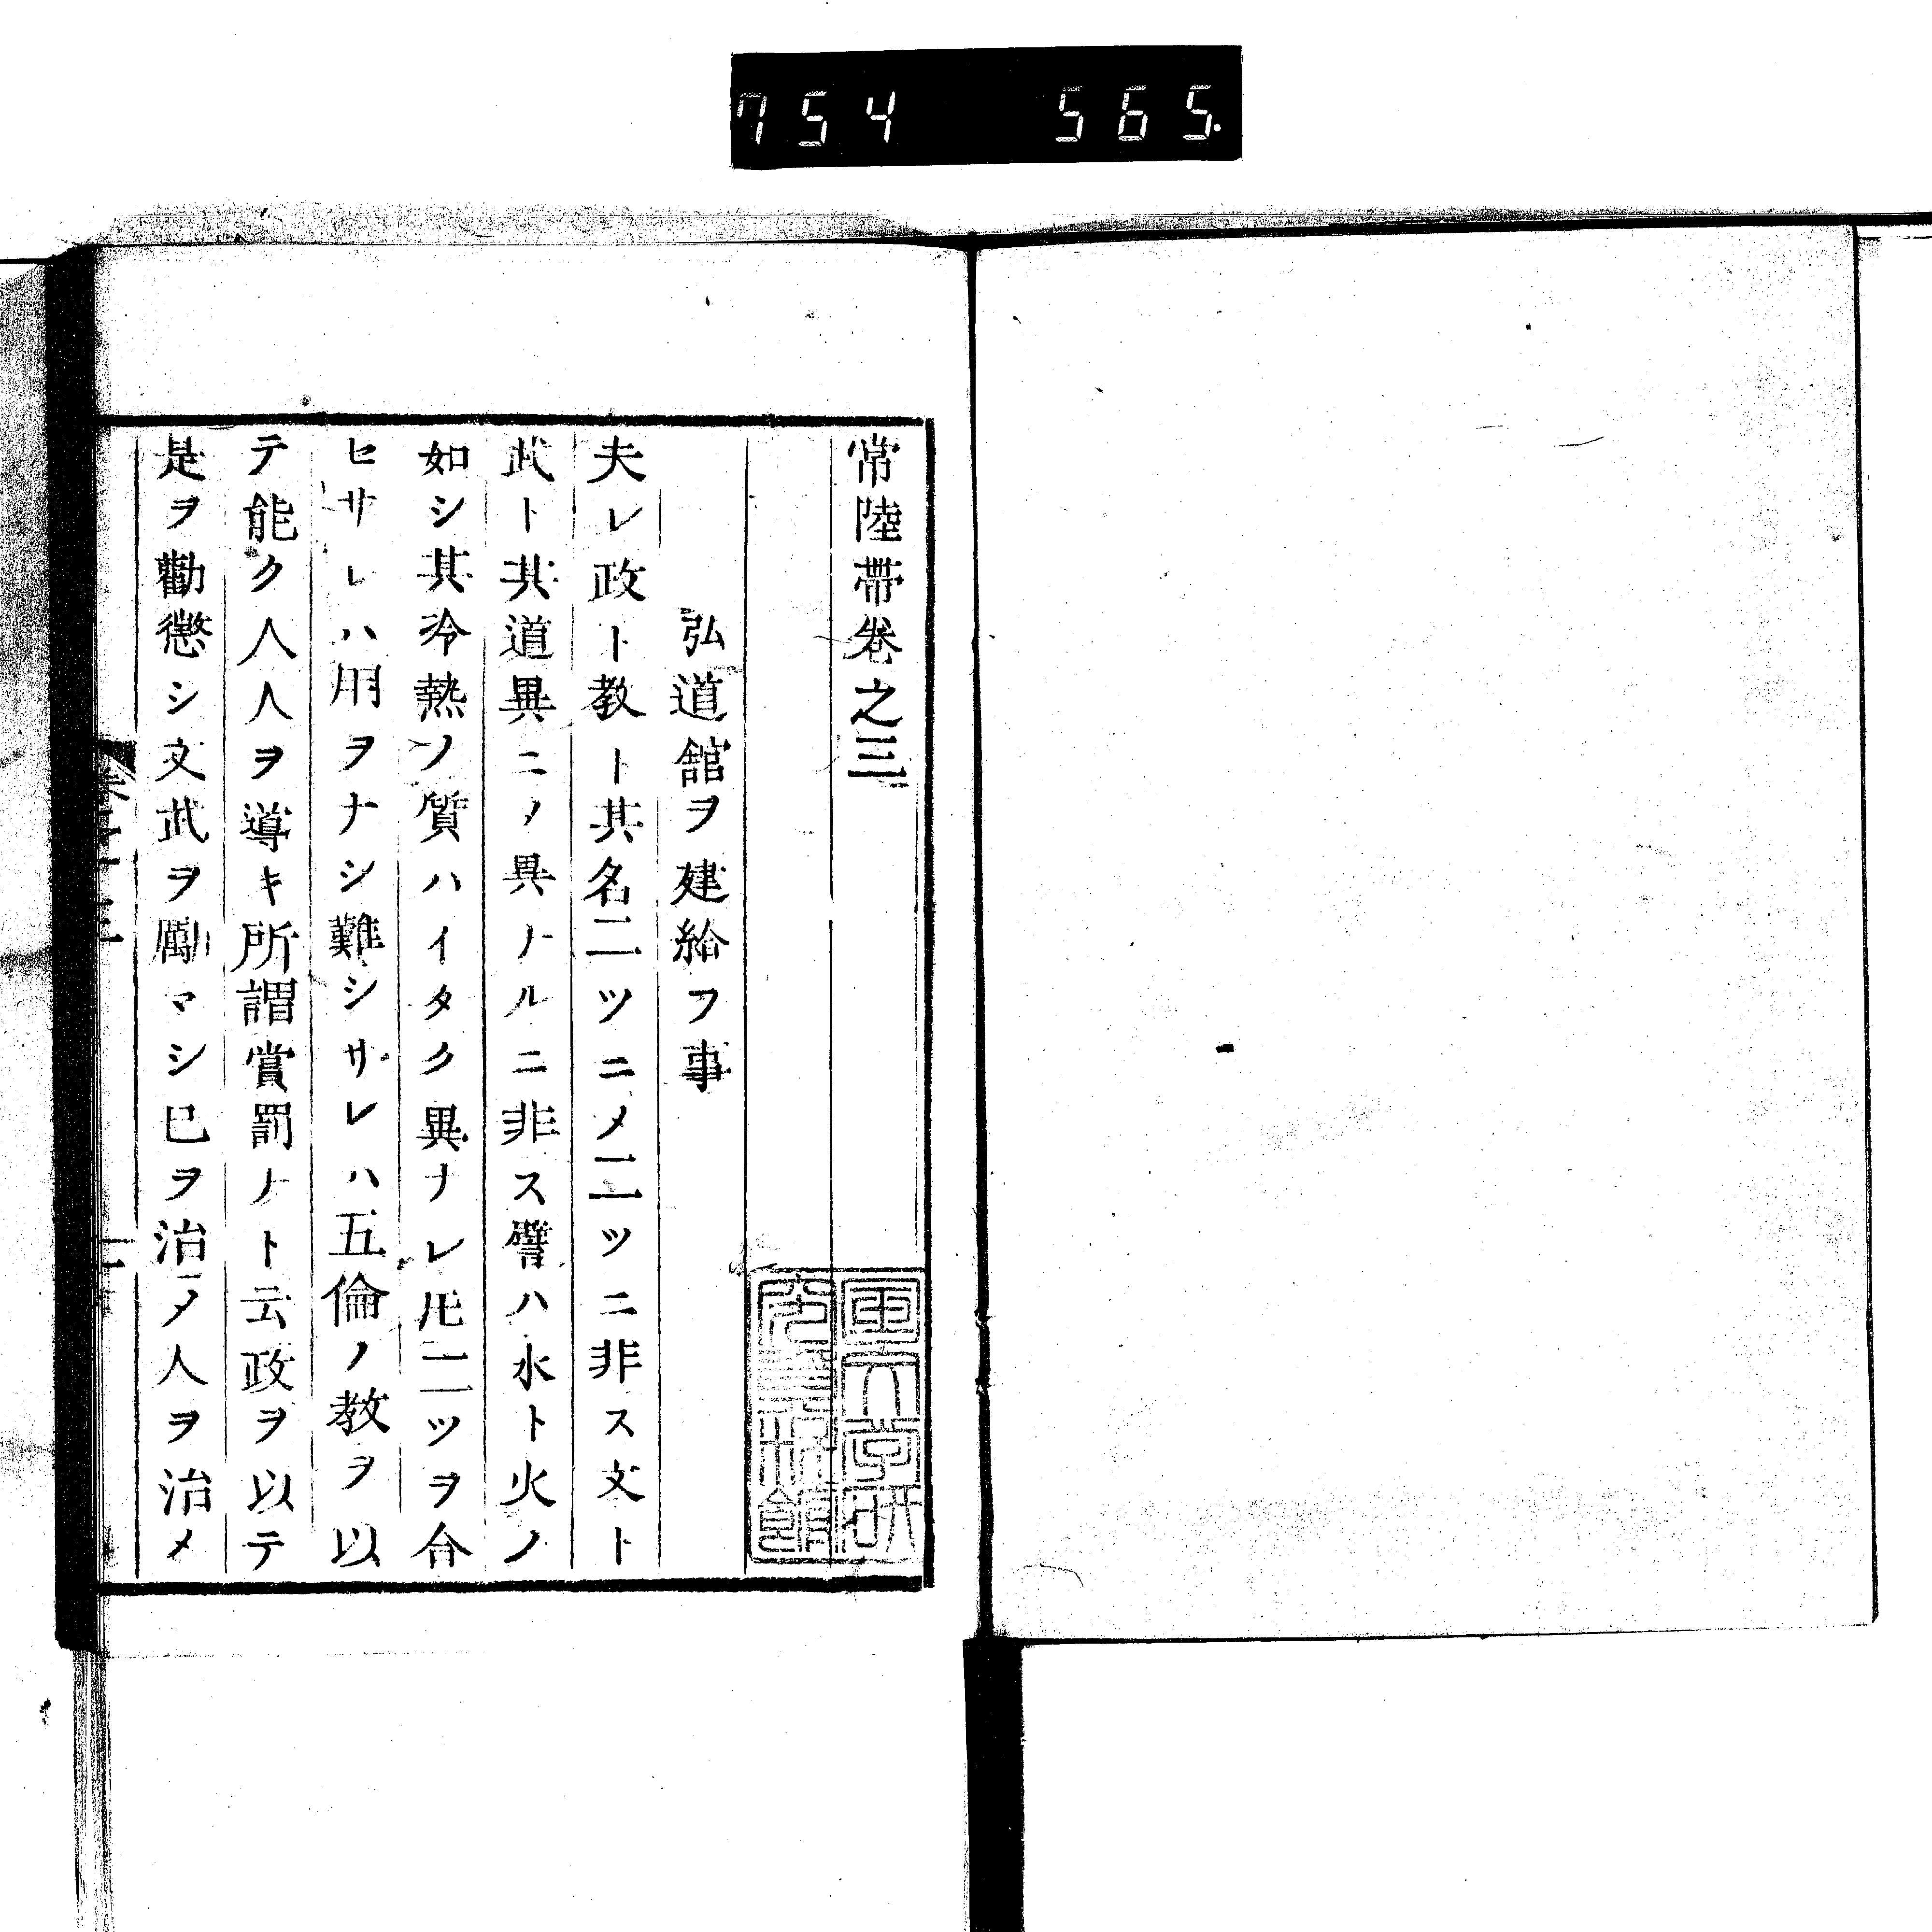 754 565.
常陸帶卷之三
弘道館ヲ建給フ事
夫レ政ト教ト其名二ツニ〆二ツニ非ス文ト
武ト其道異ニノ異ナルニ非ス譬ハ水ト火ノ
如シ其冷熱ノ質ハイタク異ナレ𪜈二ツヲ合
セサレハ用ヲナシ難シサレハ五倫ノ教ヲ以
テ能ク人人ヲ導キ所謂賞罰ナト云政ヲ以テ
是ヲ勸懲シ文武ヲ勵マシ已ヲ治メ人ヲ治メ